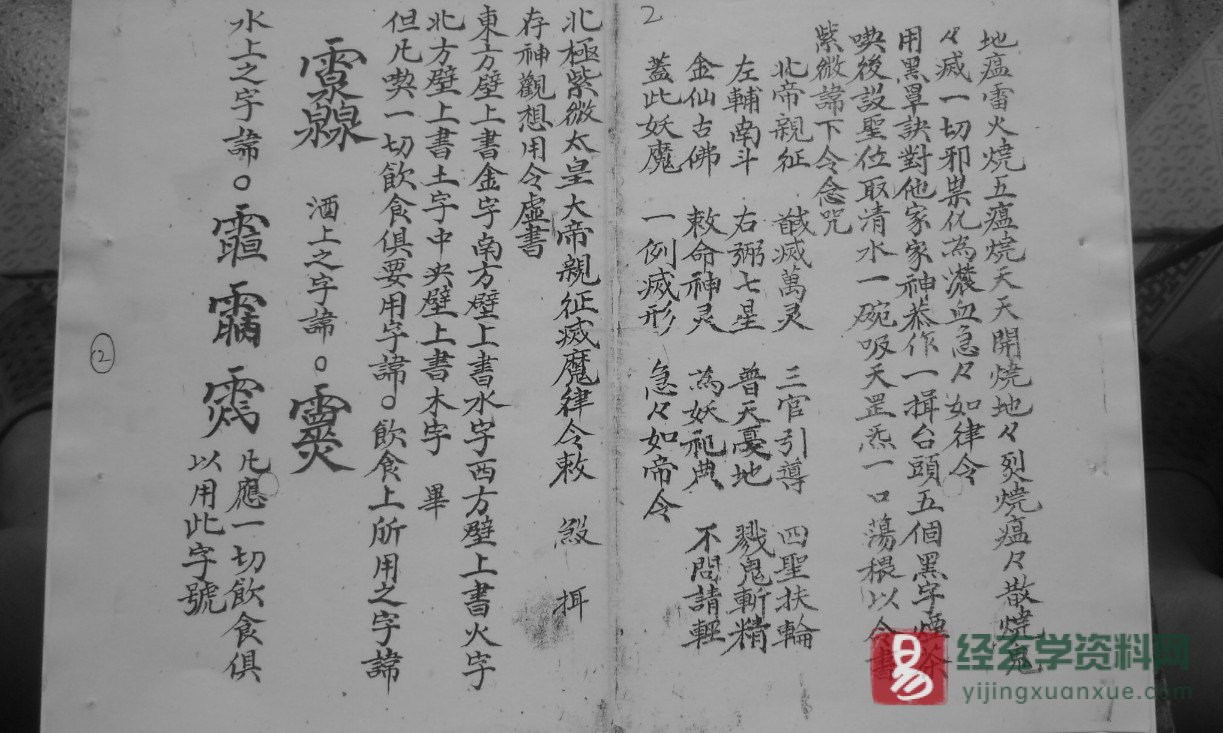 2
地瘟雷火燒五瘟燒天天開燒地々烈燒瘟々散燒鬼
々滅一切邪祟化為濃血急々如律令
用黑罩訣對他家家神恭作一揖台頭五個黑字煙茶
喫後設聖位取清水一碗吸天罡炁一口蕩穢以令書
紫微諱下令念咒
北帝親征 馘滅萬灵 三官引導 四聖扶輪
左輔南斗 右弼七星 普天憂地 戮鬼斬精
金仙古佛 敕命神灵 為妖祀典 不問請輕
蓋此妖魔 一例滅形 急々如帝令
北極紫微太皇大帝親征滅魔律令敕
存神觀想用令虛書
東方壁上書金字南方壁上書水字西方壁上書火字
北方壁上書土字中央壁上書木字 畢
但凡喫一切飲食俱要用字諱○飲食上所用之字諱
酒上之字諱○
水上之字諱○
凡應一切飲食俱
以用此字號
2
易 经玄学资料网
yijingxuanxue.com